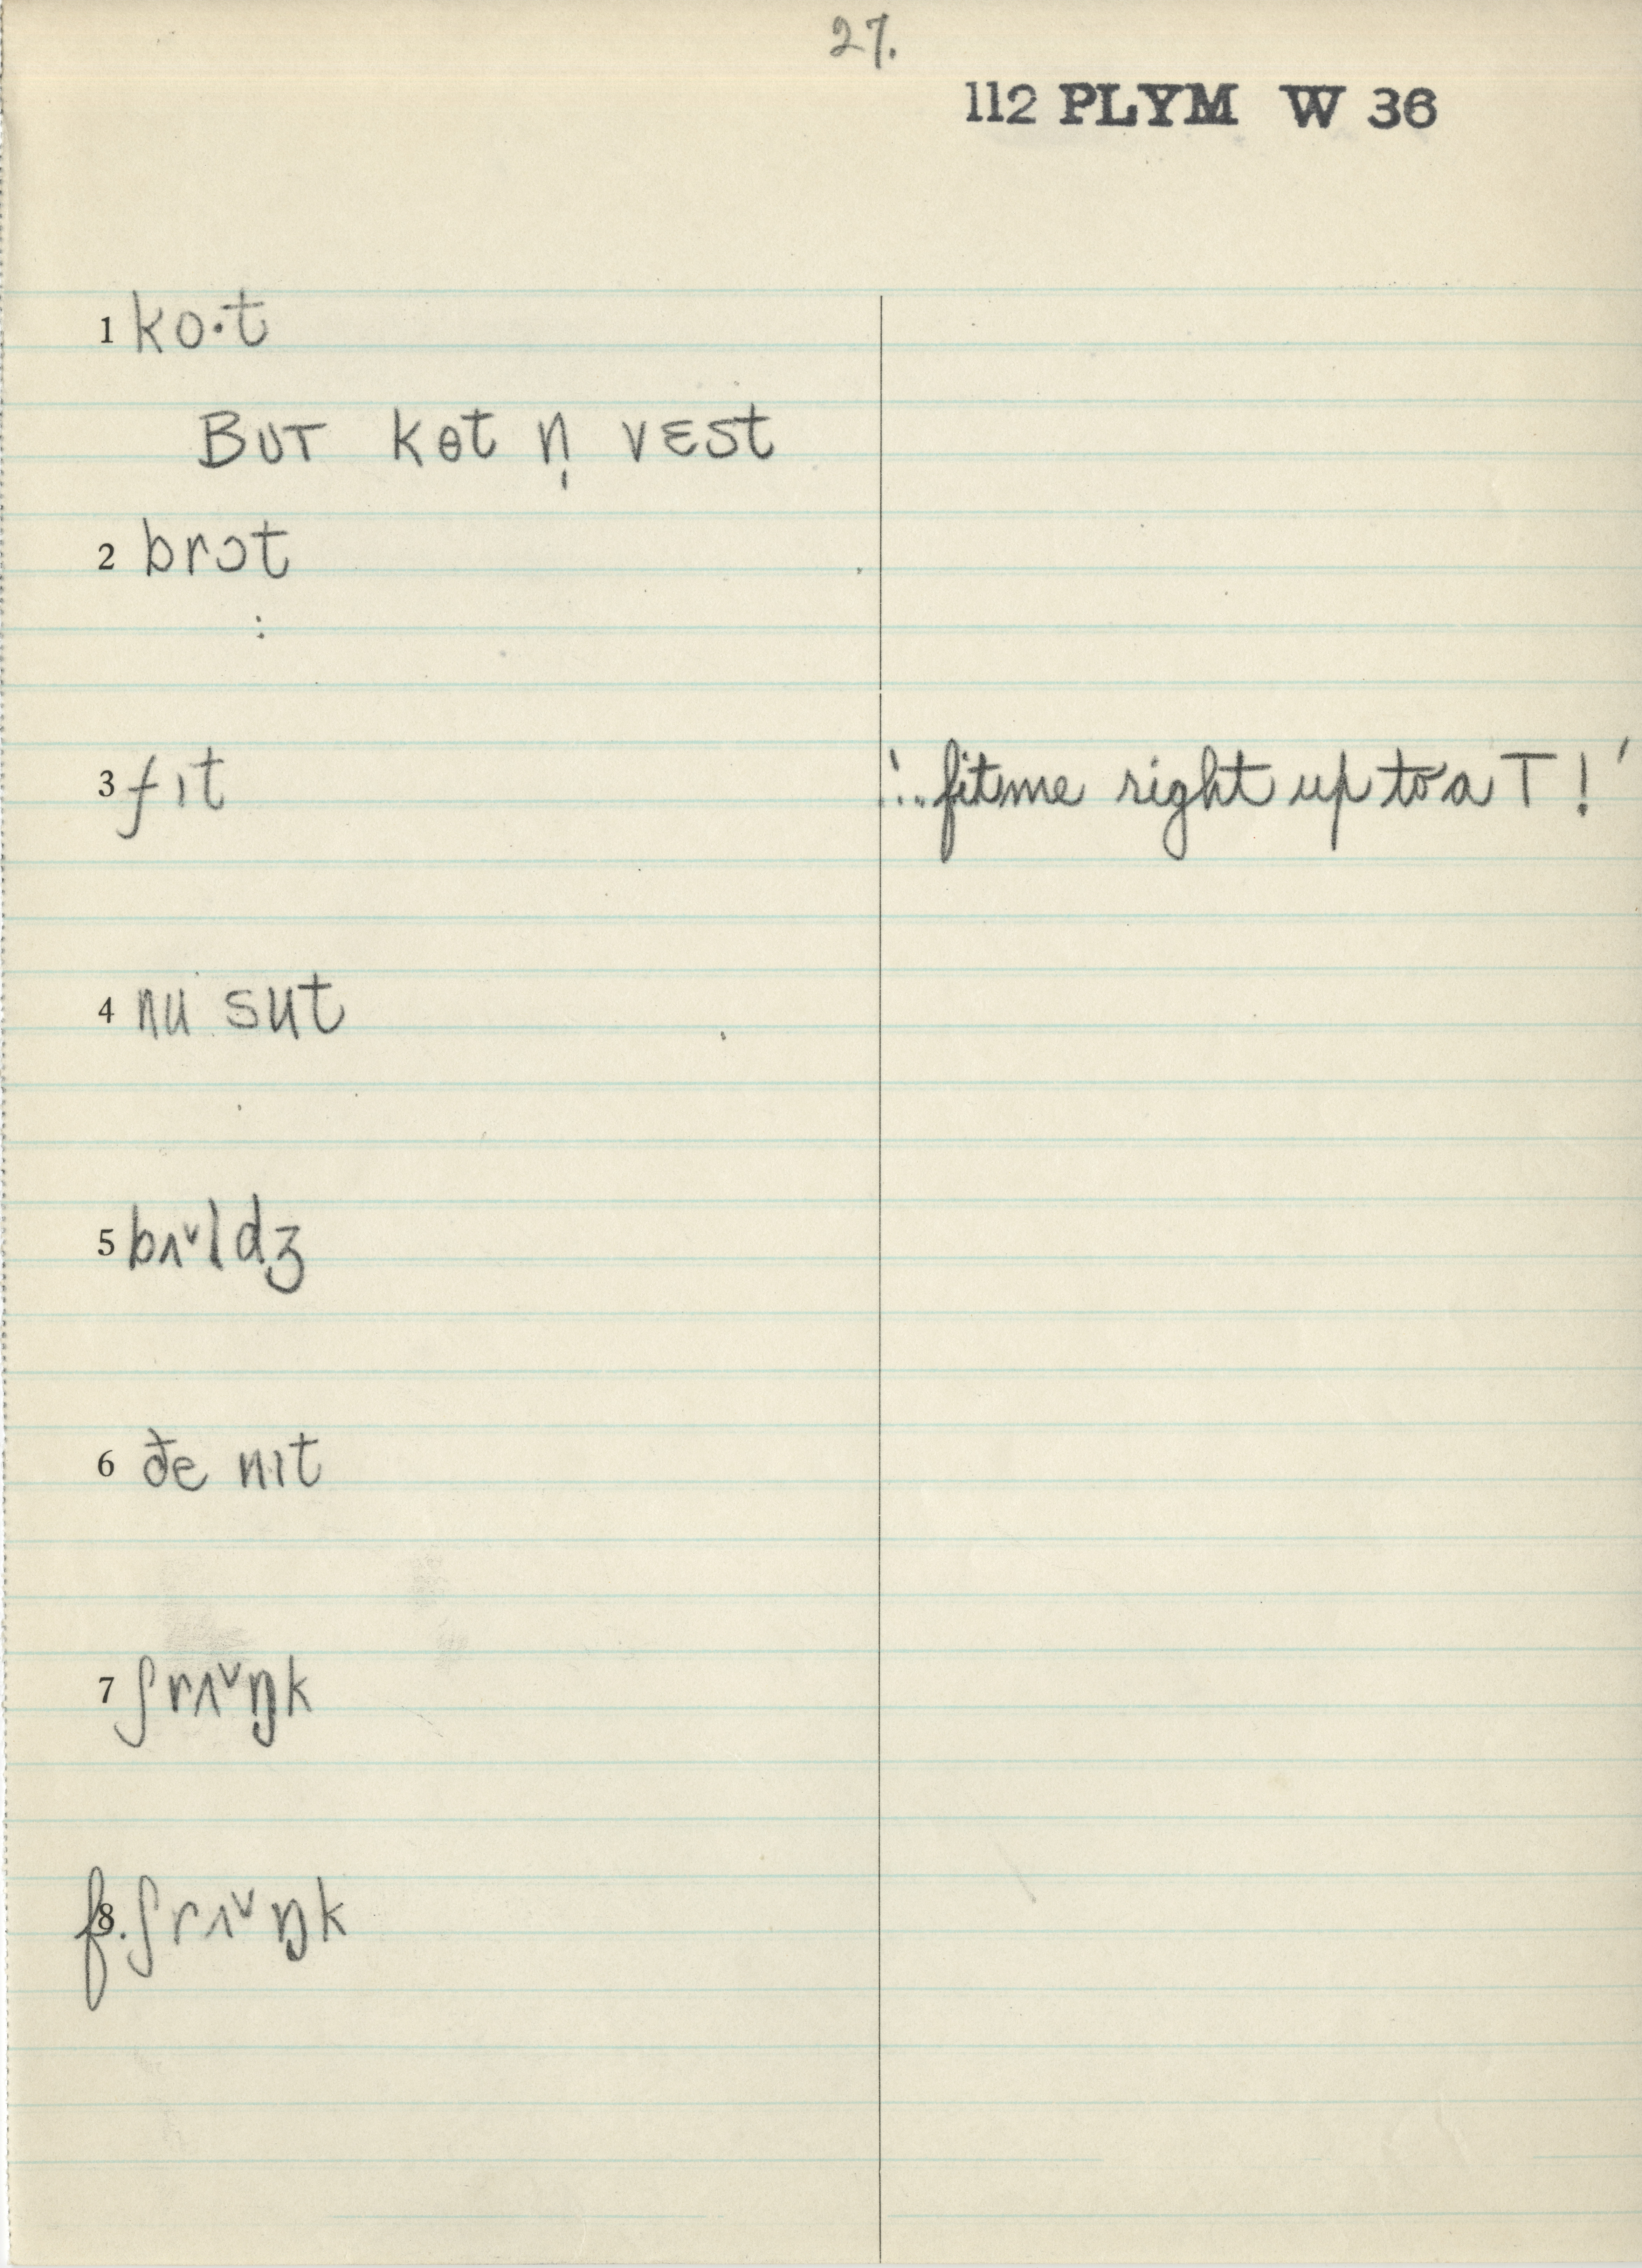 27.
112 PLYM W 36
1 ko·t
BUT kɵt n̩ vɛst
2 brɔt
:
3 fɪt '...fit me right up to a T!'
4 nu sut
5 bʌ˅ldʒ
6 ðe nɪt
7 ʃrʌ˅ŋk
8 f. ʃrʌ˅ŋk